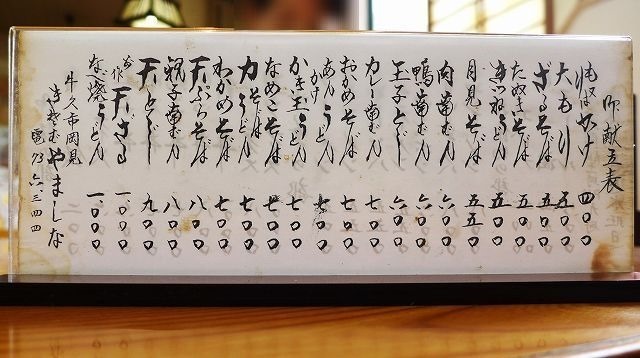 御献立表
もり かけ 四〇〇
大もり 五〇〇
ざるそば 五〇〇
たぬきそば 五〇〇
きつねうどん 五五〇
月見そば 五五〇
肉南ばん 六〇〇
鴨南ばん 六〇〇
玉子とじ 六〇〇
カレー南ばん 七〇〇
おかめそば 七〇〇
あんかけうどん 七〇〇
かき玉うどん 七〇〇
なめこそば 七〇〇
力そばうどん 七〇〇
わかめそば 七〇〇
天ぷらそば 八〇〇
親子南ばん 八〇〇
天とじ 九〇〇
天ざる 一、〇〇〇
なべ焼うどん 一、〇〇〇
牛久市岡見
やましな
電73六三四四